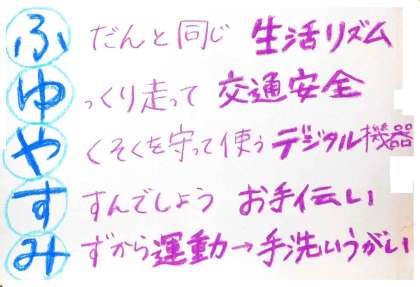 ふだんと同じ 生活リズム
ゆっくり走って 交通安全
やくそくを守って使う デジタル機器
すすんでしよう お手伝い
みずから運動→手洗いうがい